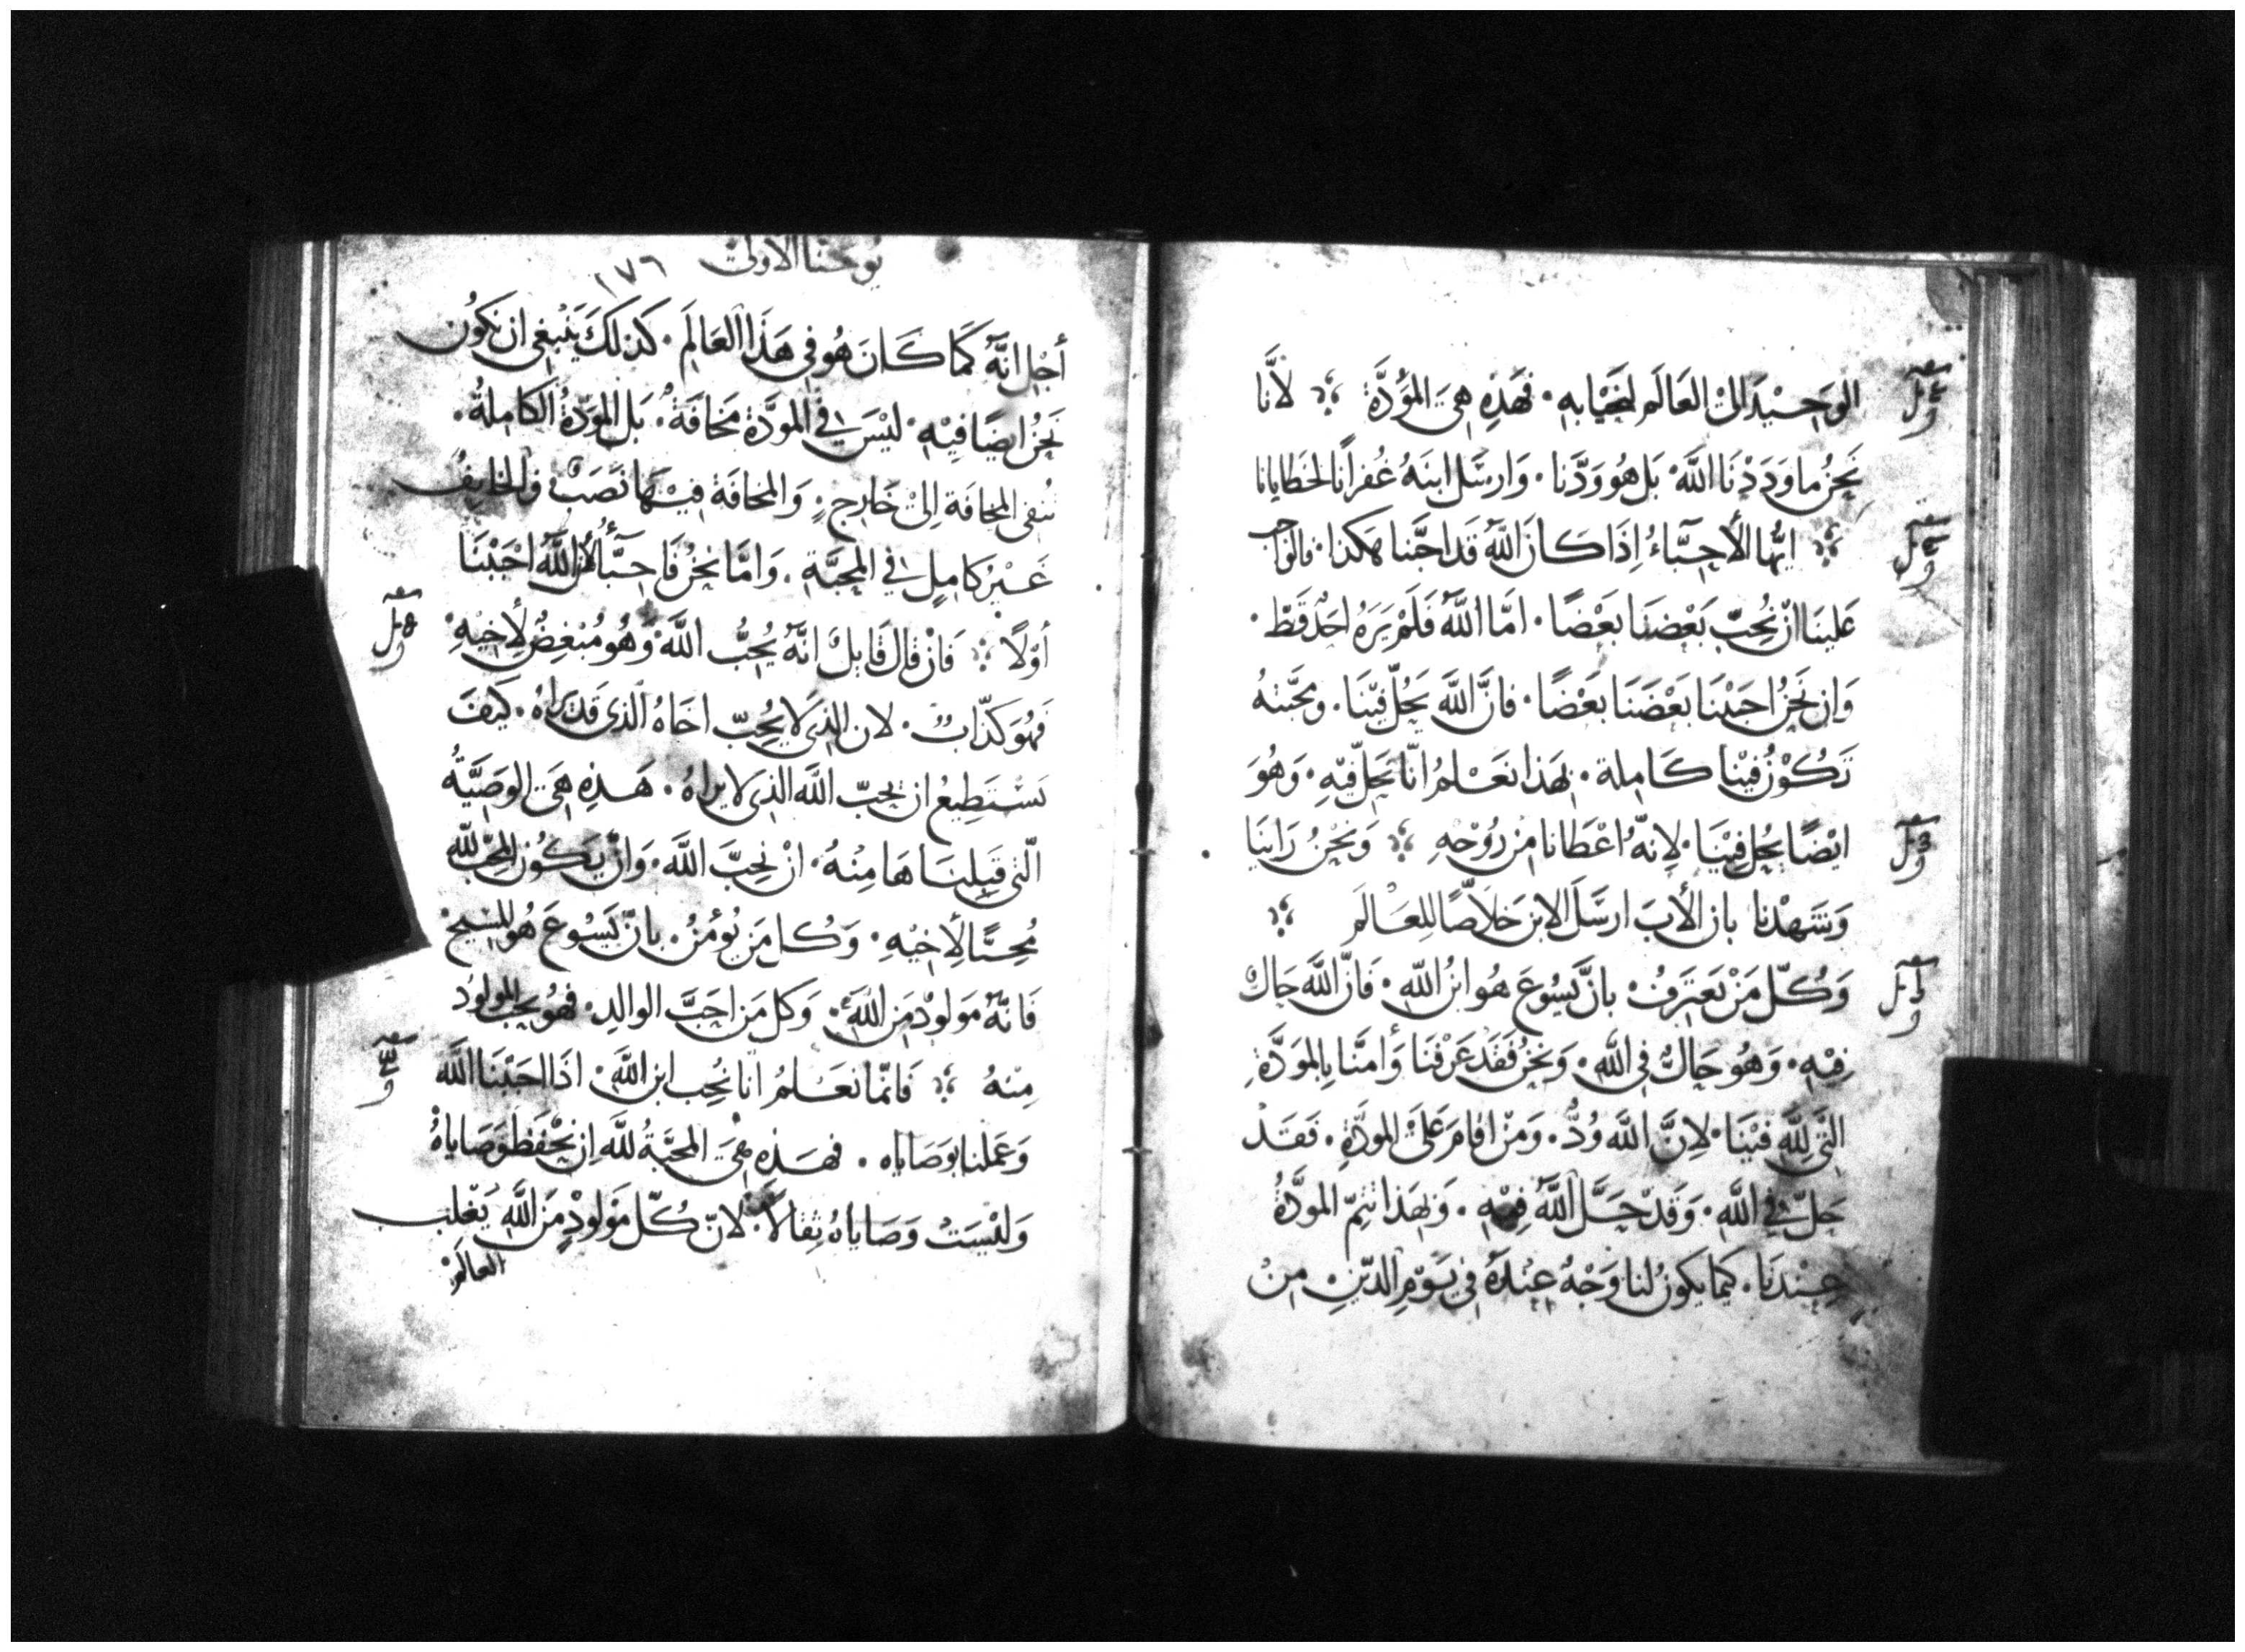 الوَحِيْدَ الىْ العَالَم لنحَيْا بهِ · فَهَذِهِ هِىَ المَوَدَّة ⁘ لأنَّا
نَحْنُ ما وَدَدْنَا اللَّهَ · بَل هُو وَدَّنا · وَارسَل ابنَهُ غُفرانًا لخطايانا
⁘ ايُّها الأحِبَّاءُ اِذَا كانَ اللَّهُ قَد احَبَّنا هكذا · فالوَاجب
عَلينَا انْ نُحِبّ بَعْضنَا بعَْضًا · امَّا اللَّهُ فَلَمْ يَرَهُ احَدْ قَطّ ·
وَان نَحْنُ احبَبْنَا بَعْضَنَا بَعْضًا · فانَّ اللَّهَ يَحُلّ فِيْنَا · ومحَّبتهُ
تَكُوْنُ فِيْنا كَاملة · بهَذا نَعْلمُ انّا نَحِلّ فيْهِ · وَهُوَ
ايْضًا يحُل فِيْنَا · لاِنَّهُ اعْطَانا مِنْ رُوْحْهِ ⁘ وَنحْنُ رَانيَا
وَشَهِدْنا بان الأبَ ارسَلَ الابنَ خلاصًا للِعَالَم ⁘
وَكُلّ مَنْ يَعتَرفُ · بانَّ يَسُوعَ هُو ابنُ اللَّهِ · فَانَّ اللَّهَ حَالٌ
فِيْهِ · وَهُو حَالٌّ فى اللَّهِ · وَنَحْنُ فَقَد عَرَفْنَا وَأمنَّا بِالمَودَّةِ
التَّى لِلَّهِ فيْنَا · لاِنَّ اللَّه وُدٌّ · وَمَنْ اقامَ عَلىَ المودَّةِ · فَقَدْ
حَلّ فى اللَّهِ · وَقَدْ حَلَّ اللَّهُ فِيْهِ · وَبهَذا تتِمّ المودَّةُ
عِنْدَنا · كيما يكونُ لنا وَجْهُ عِنْدَهُ فى يَوْمِ الدّيْنِ مِنْ
يوحنا الاولى ١٧٦
أجْل انَّهُ كَمَا كَانَ هُو فى هَذا العَالَم · كذلكَ يَنْبغى ان نكوُن
نَحْنُ ايضًا فِيْهِ · ليْسَ فى المودَّة مَخافَةٌ · بَل المَودّةُ الكَاملةُ ·
تُنفى المخافَة اِلىْ خَارج · وَالمخافَة فِيْهَا نَصَبْ وَالخايفُ
غَيْرُ كامِلٍ فى المحَبَّة · وَامَّا نحْنُ فَاحِبّأُ لأن اللَّهُ احبَبْنَا
أوّلاً ⁘ فَانْ قال قَايلٌ انَّهُ يُحِبُّ اللَّهَ وَهُو مُبْغِضٌ لأِخيْهِ ·
فَهُوَ كَذّابٌ · لان الذى لا يُحِبّ اخَاهُ الذى قَد يَراهُ · كَيفَ
يَسْتَطِيعُ ان يحبّ اللَّه الذى لا يراهُ · هَذِهِ هىَ الوَصِيَّةُ
الّتى قَبِلنَاهَا مِنْهُ · انْ نحِبَّ اللَّهَ · وَانْ يكوُن المحبّ للّه
مُحِبًّا لأِخيْهِ · وَكُل مَن يُؤْمنُ · بانّ يَسُوعَ هُو المسيح
فَانَّهُ مَولوُدْ مِنَ اللَّهِ · وَكل مَن احَبَّ الوالدِ · فهُو يحَب المولوُد
مِنْهُ ⁘ فَانمّا نعْلمُ انّا نُحِب ابن اللَّهِ · اذَا احبَبْنَا اللَّه
وَعَملنا بوَصَاياه · فهَذِهِ هىَ المحبَّةُ للَّهِ اِن نَحْفَظ وَصَاياهُ
وَليْسَتْ وَصَاياهُ ثِقالاً · لانّ كُلّ مَولودٍ مِنَ اللَّهِ يَغْلِب
العالمَ